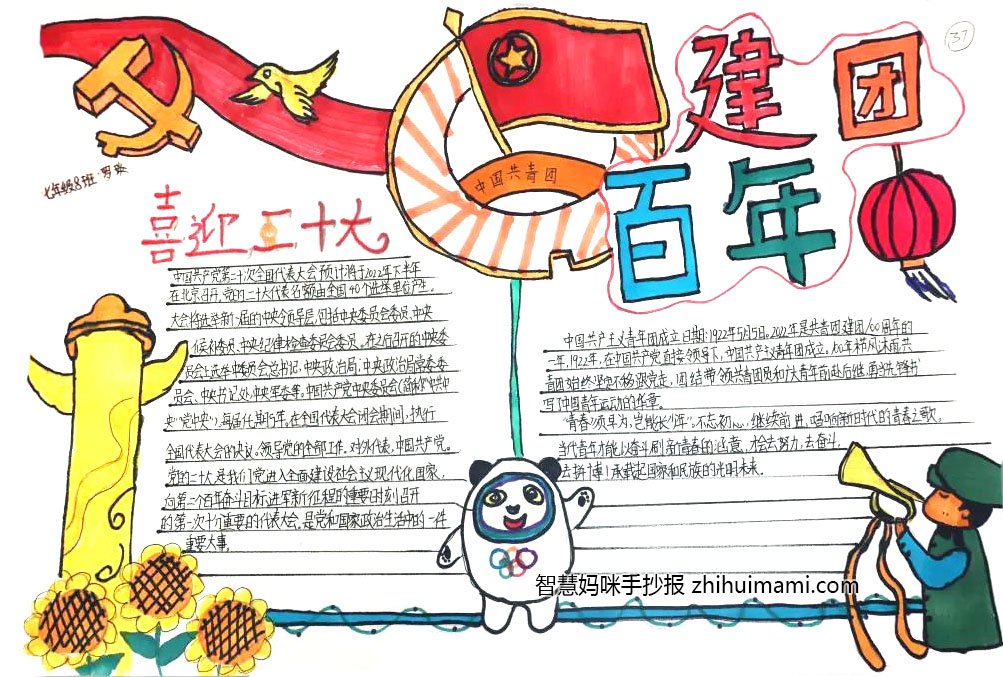 37
建团
百年
中国共青团
七年级8班
喜迎二十大
中国共产党第二十次全国代表大会预计将于2022年下半年
在北京召开,党的二十大代表名额由全国40个选举单位产生。
大会将选举新一届的中央领导层,包括中央委员会委员、中央
候补委员、中央纪律检查委员会委员。在之后召开的中央
员会上选举中委员会总书记,中央政治局,中央政治局常委委
员会、中央书记处、中央军委等。中国共产党中央委员会(简称"中共中
央""党中央"),每届任期5年,在全国代表大会闭会期间,执行
全国代表大会的决议,领导党的全部工作。对外代表,中国共产党。
党的二十大是我们党进入全面建设社会主义现代化国家,
向第二个百年奋斗目标进军新征程的重要时刻召开
的第一次十分重要的代表大会,是党和国家政治生活中的一件
重要大事。
中国共产主义青年团成立日期:1922年5月5日。2022年是共青团建团100周年的
一年,1922年,在中国共产党直接领导下,中国共产主义青年团成立。100年栉风沐雨共
青团始终坚定不移跟党走,团结带领共青团员和广大青年前赴后继、勇当先锋书
写了中国青年运动的华章。
"青春须早为,岂能长少年"。不忘初心、继续前进,唱响新时代的青春之歌。
当代青年才能以奋斗刷新青春的涵意,才会去努力,去奋斗。
去拼搏!承载起国家和民族的光明未来。
智慧妈咪手抄报 zhihuimami.com